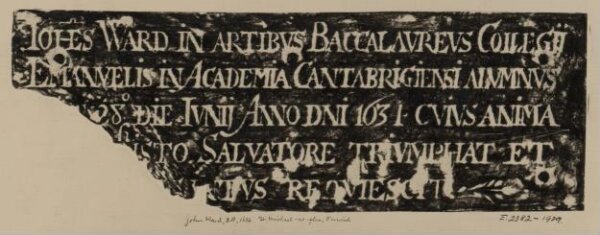 IOHES WARD IN ARTIBVS BACCALAVREVS COLLEGIJ
EMANVELIS IN ACADEMIA CANTABRIGIENSI ALVMNVS
28º DIE IVNIJ ANNO DNI 1631 CVIVS ANIMA
ISTO SALVATORE TRIVMPHAT ET
TVS REQVIESCIT
John Ward, B.A., 1631 St Michael-at-plea, Norwich E.2382-1929